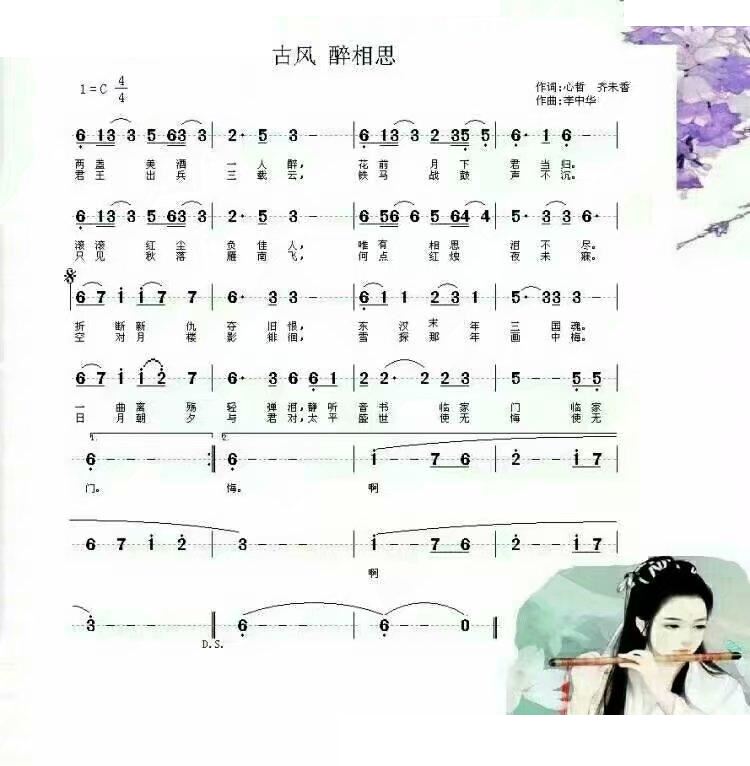 古风 醉相思
1=C 4/4
作词:心哲 齐未香
作曲:李中华
6 13 3 5 63 3 | 2· 5 3 - | 6 13 3 2 35 5 | 6· 1 6 - |
两盏 美酒 一人醉, 花前 月下 君当归。
君王 出兵 三载云, 铁马 战鼓 声不沉。
6 13 3 5 63 3 | 2· 5 3 - | 6 56 6 5 64 4 | 5· 3 3 6· |
滚滚 红尘 负佳人, 唯有 相思 泪不尽。
只见 秋落 雁南飞, 何点 红烛 夜未寐。
6 7 i i 7 7 | 6· 3 3 - | 6 1 1 2 3 1 | 5· 33 3 - |
折断新仇 夺旧恨, 东汉末年 三国魂。
空对月楼 影徘徊, 雪探那年 画中梅。
6 7 i i 2 2 | 6· 3 3 6 1 | 2 2· 2 3 2 | 5 - - 5 5 |
一曲离殇 轻弹泪,静听 音书临家 门 临家
日月朝夕 与君对,太平 盛世使无 悔 使无
1. 6 - - - :| 2. 6 - - - | i - - 7 6 | 2 - - i 7 |
门。 悔。 啊
6 7 i 2 | 3 - - - | i - - 7 6 | 2 - - i 7 |
啊
3 - - - || 6 - - - | 6 - - 0 ||
D.S.